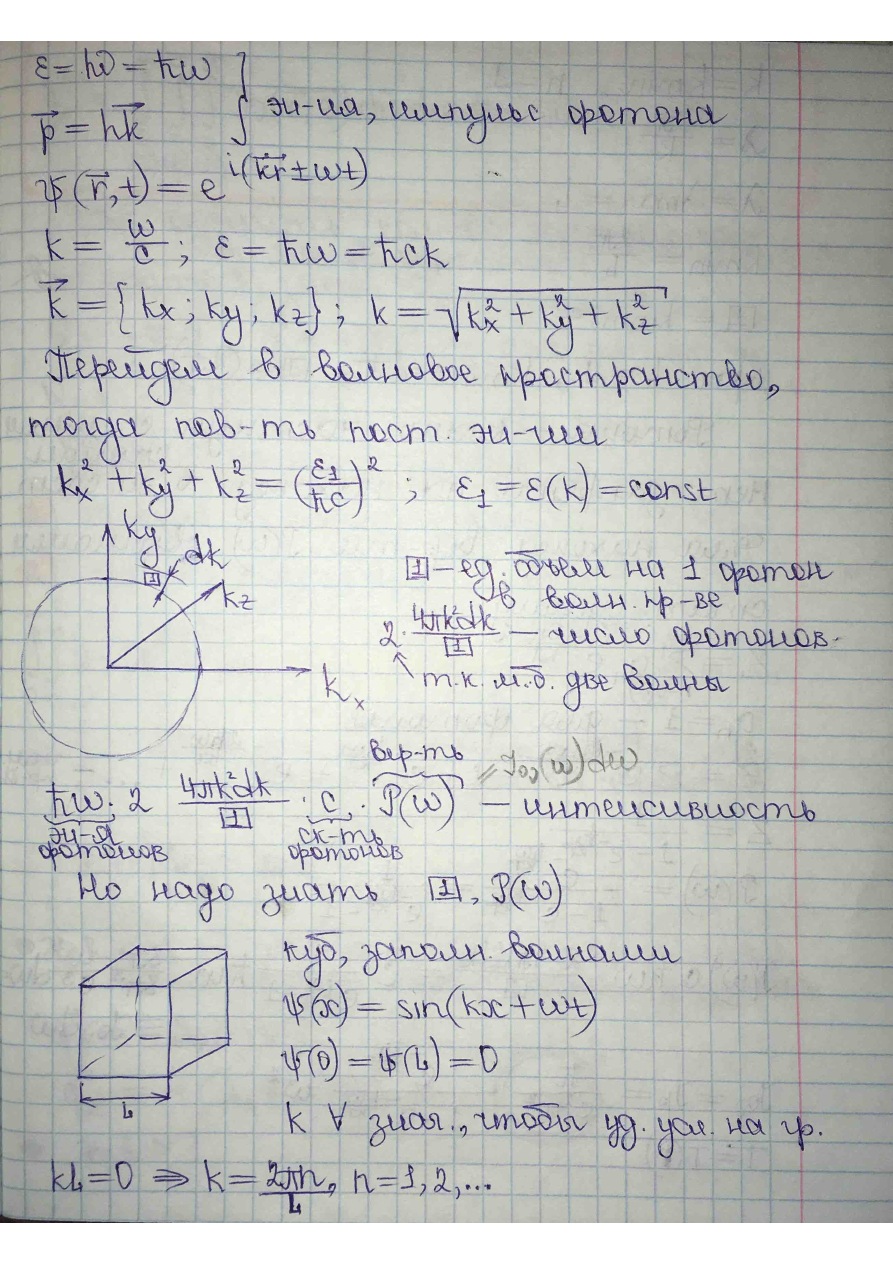 ε = hν = ħω
p⃗ = ħk⃗ } эн-ия, импульс фотона
ψ(r⃗, t) = e^{i(k⃗r⃗ ± ωt)}
k = ω/c ; ε = ħω = ħck
k⃗ = {kx ; ky ; kz} ; k = √(kx² + ky² + kz²)
Перейдем в волновое пространство,
тогда пов-ть пост. эн-гии
kx² + ky² + kz² = (ε1/ħc)² ; ε1 = ε(k) = const
ky
dk
1
kz
kx
1 – ед. объем на 1 фотон
в волн. пр-ве
2 · 4πk²dk/1 – число фотонов
т.к. м.б. две волны
вер-ть
ħω · 2 4πk²dk/1 · c · P(ω) – интенсивность
эн-я фотонов
ск-ть фотонов
Но надо знать 1, P(ω)
куб, заполн. волнами
ψ(x) = sin(kx + ωt)
ψ(0) = ψ(L) = 0
L
k ∀ знач., чтобы уд. усл. на гр.
kL = 0 ⇒ k = 2πn/L, n = 1, 2, ...